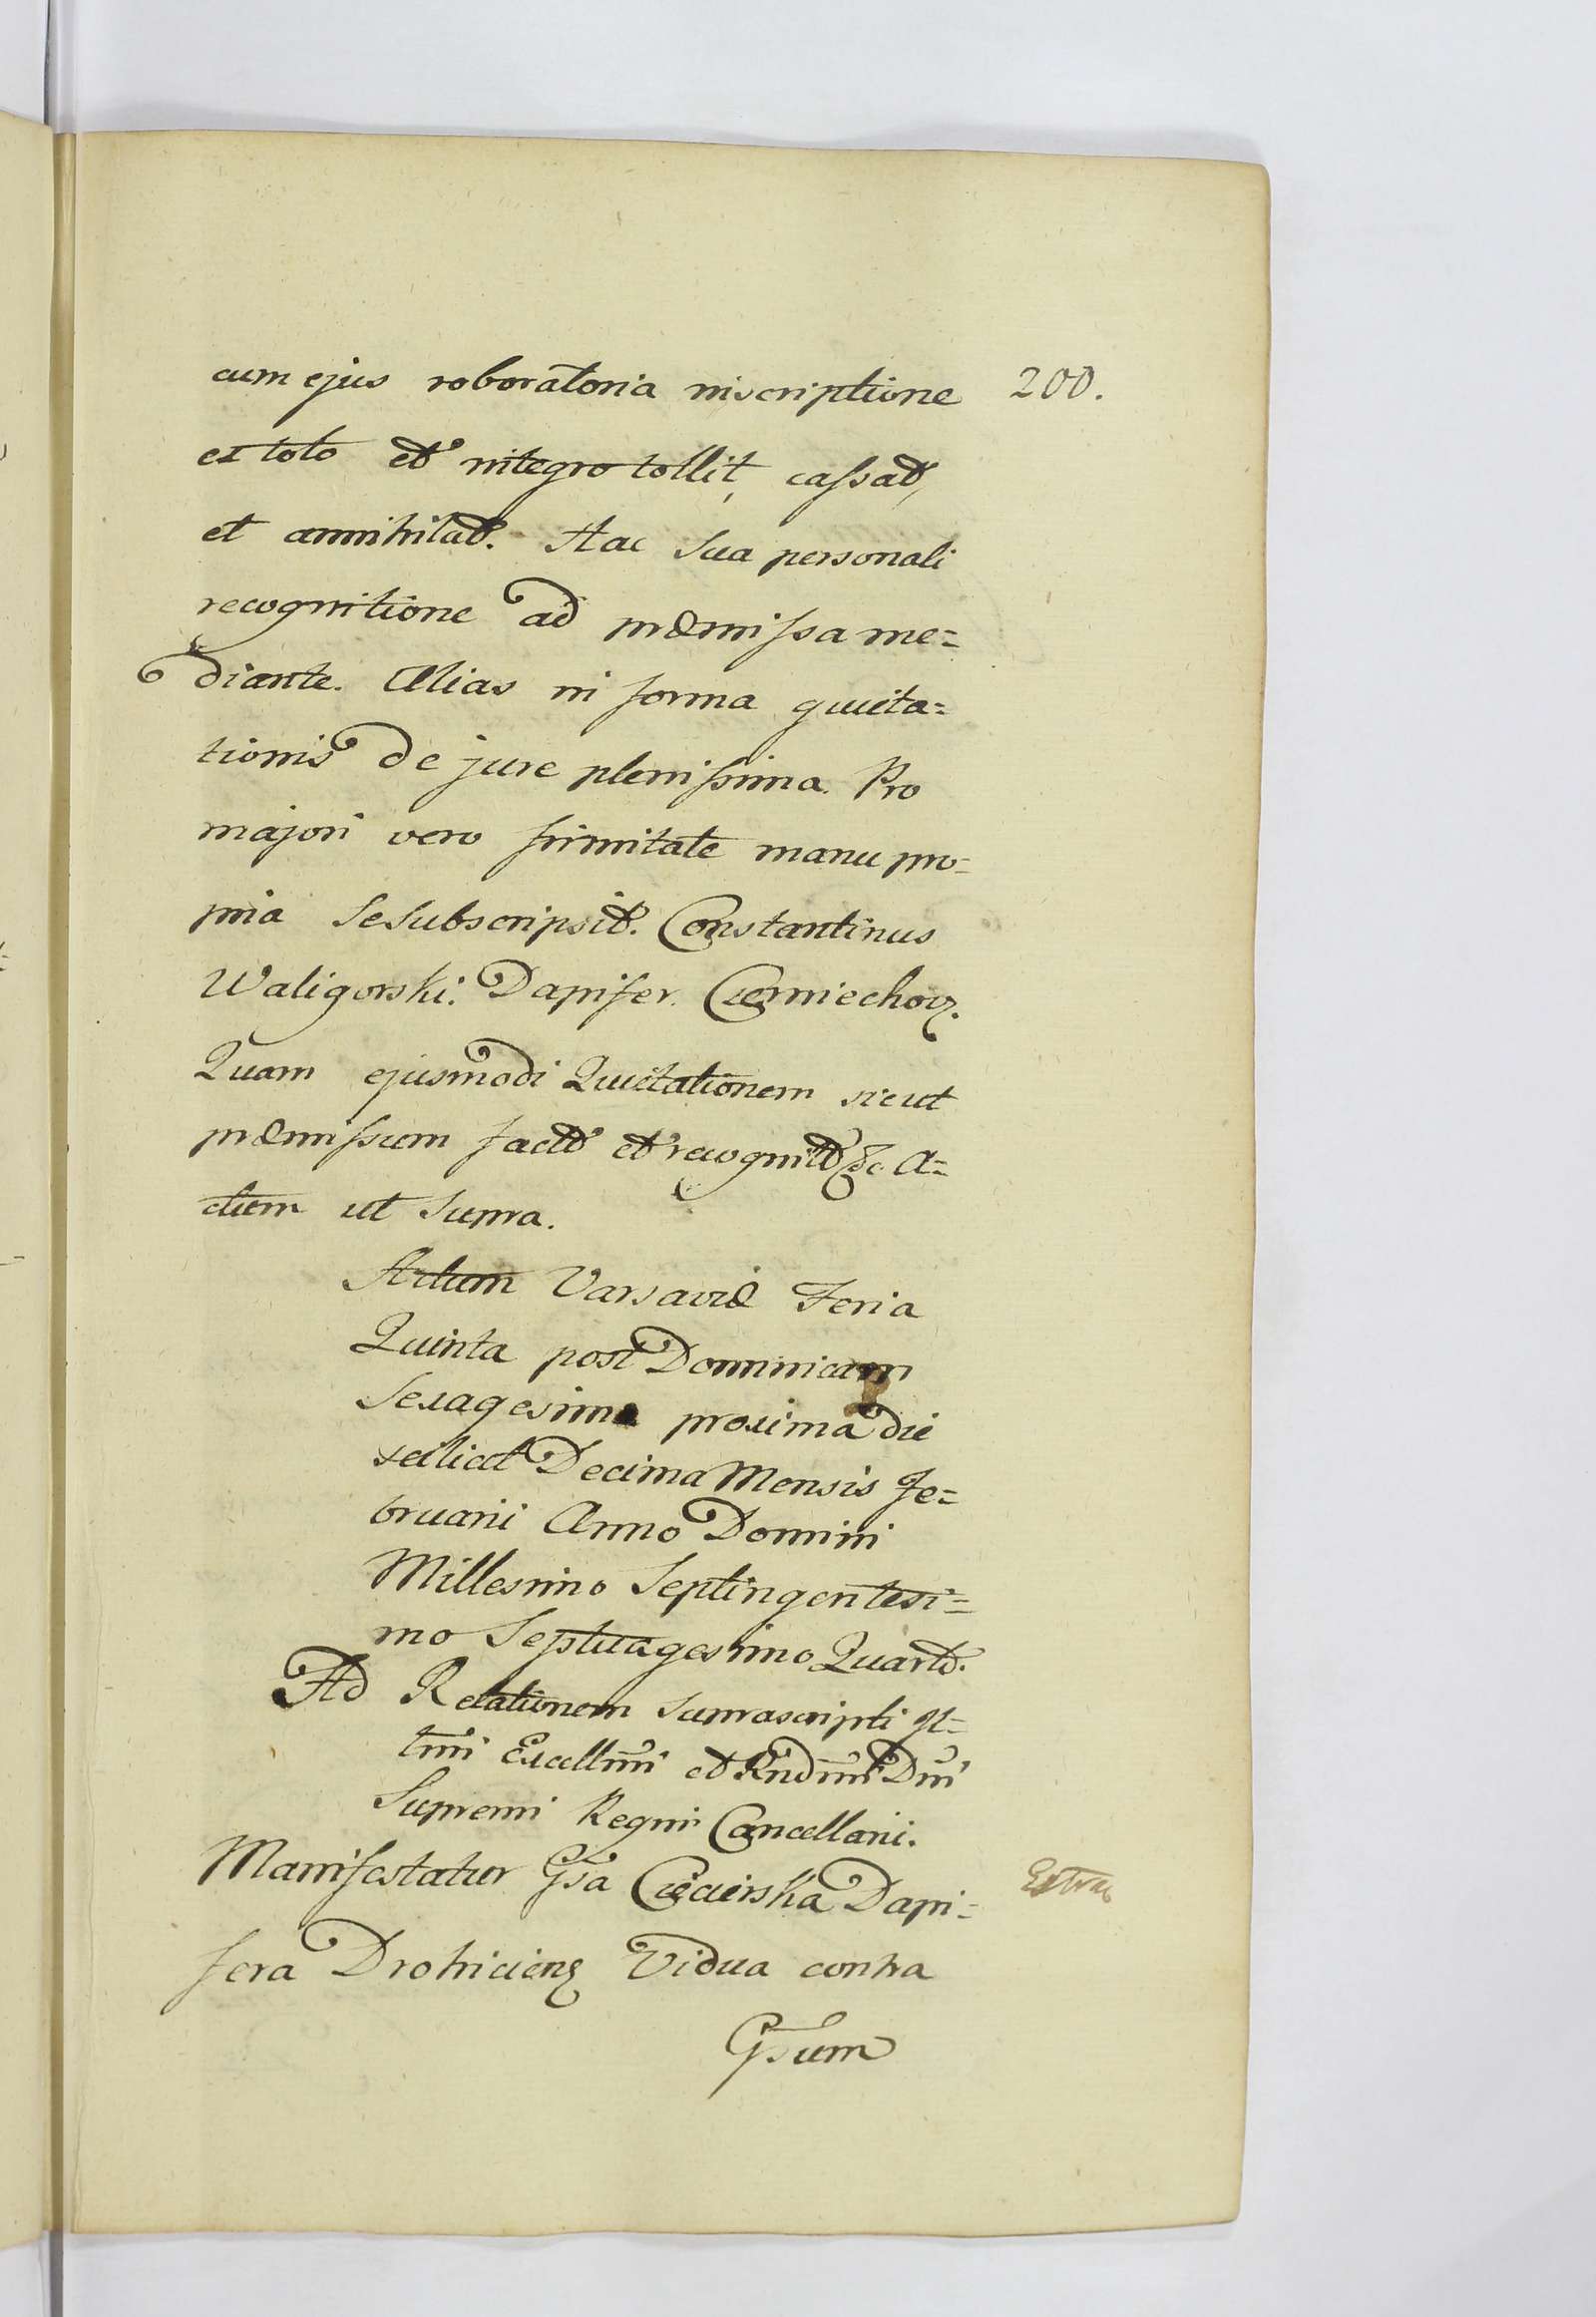 cum ejus roboratoria inscriptione 200.
ex toto et integro tollit, cassat,
et annihilat. Hac sua personali
recognitione ad præmissa me=
diante. Alias in forma quieta=
tionis de jure plenissima. Pro
majori vero firmitate manu pro=
pria se subscripsit. Constantinus
Waligorski. Dapifer. Czerniechov.
Quam ejusmodi Quietationem sicut
præmissum factt et recognitt &c A=
ctum ut supra.
Actum Varsaviæ Feria
Quinta post Dominicam
Sexagesima proxima die
scilicet Decima Mensis Fe=
bruarii Anno Domini
Millesimo Septingentesi=
mo Septuagesimo Quarto.
Ad Relationem suprascripti Il=
tmi Excellmi et Rndmi Dni
Supremi Regni Cancellarii.
Manifestatur Gsa Ciecierska Dapi=
fera Drohiciens Vidua contra
Gsum